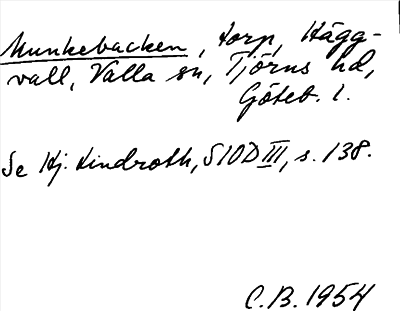 Munkebacken, torp, Hägg-
vall, Valla sn, Tjörns hd,
Göteb. l.
Se Hj. Lindroth, SIOD III, s. 138.
C.B. 1954